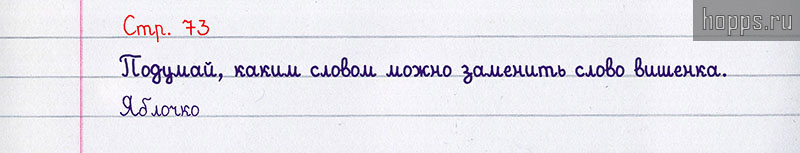 hopps.ru
Стр. 73
Подумай, каким словом можно заменить слово вишенка.
Яблочко